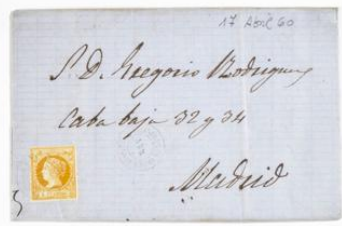 17 Abril 60
S. D. Gregorio Rodriguez
Caba baja 32 y 34
Madrid